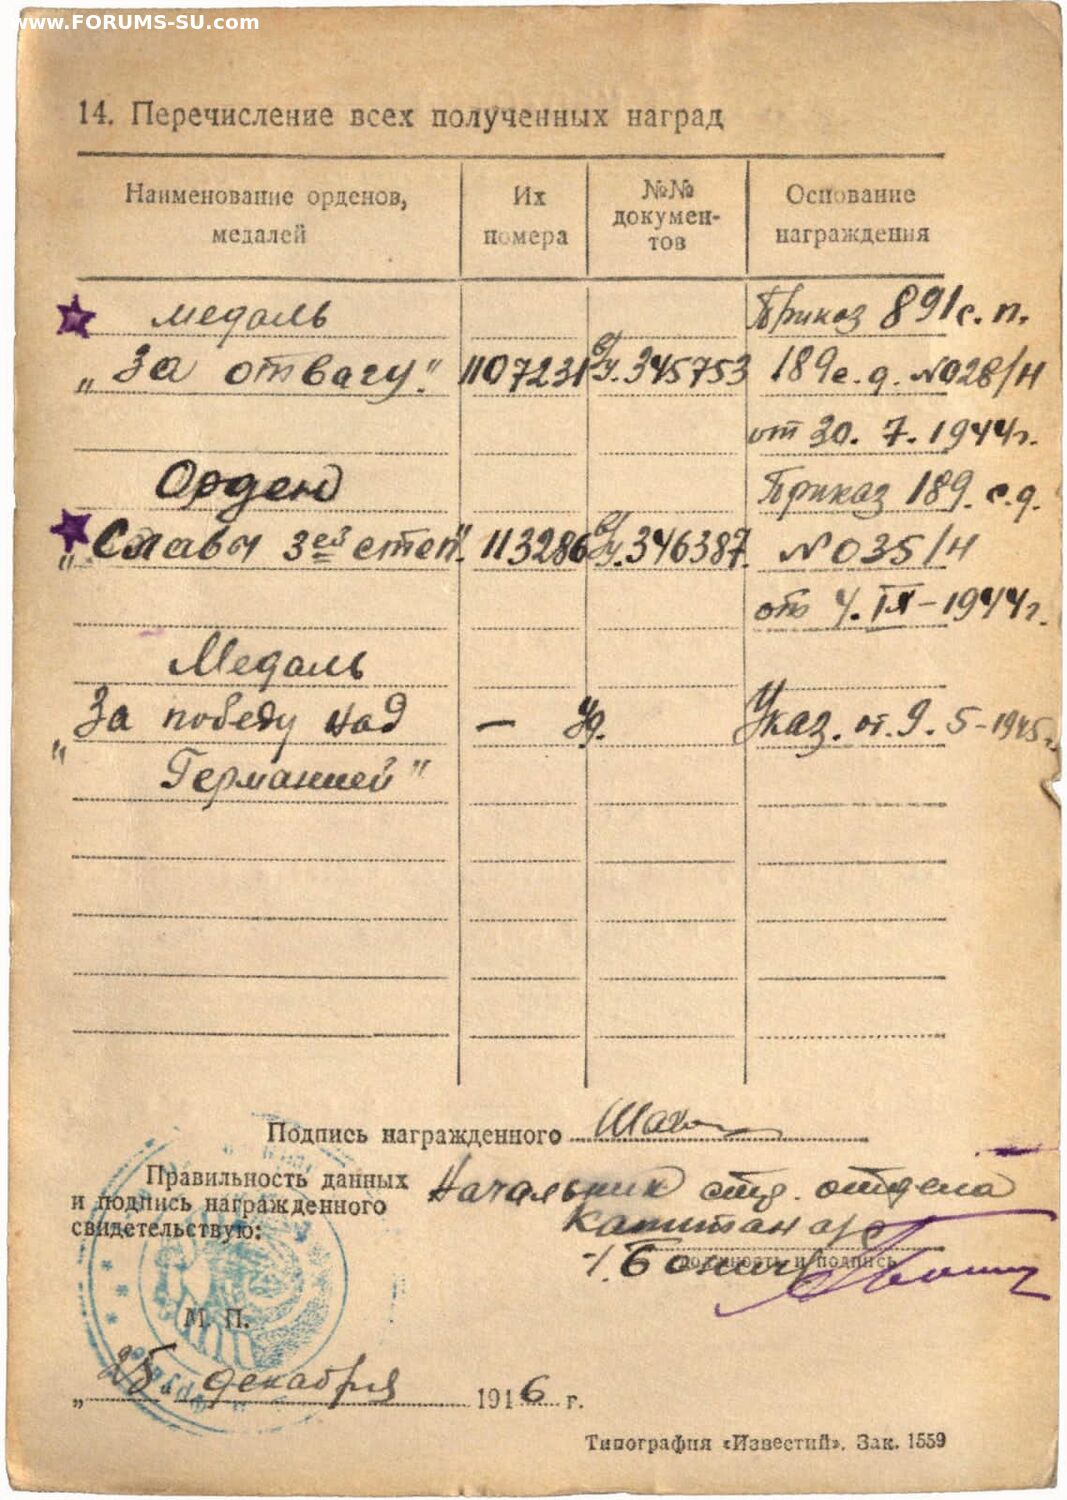 www.FORUMS-SU.com
14. Перечисление всех полученных наград
Наименование орденов, медалей
Их номера
№№ докумен-тов
Основание награждения
медаль Приказ 891 с.п.
„За отвагу." 1107231 345753 189 с.д. №028/н
от 30. 7. 1944г.
Орден Приказ 189. с.д.
„Славы 3ей степ". 113286 346387. №035/н
от 4. IX-1944г.
Медаль
„За победу над — Уд. Указ. от. 9. 5-1945г.
Германией"
Подпись награжденного
Правильность данных
и подпись награжденного
свидетельствую:
Начальник отдела
Капитан а/с
должность и подпись
М. П.
„25" декабря 1946 г.
Типография «Известий». Зак. 1559